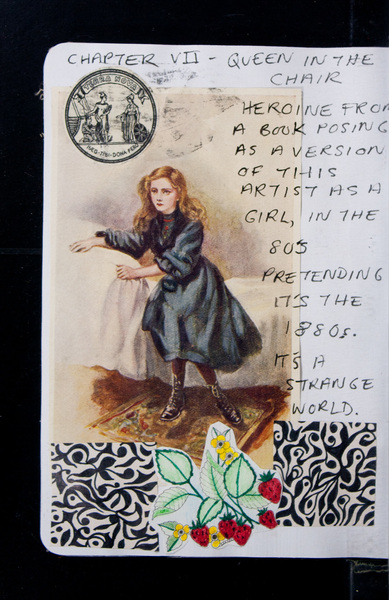 CHAPTER VII - QUEEN IN THE
CHAIR
HEROINE FRO
A BOOK POSING
AS A VERSION
OF THIS
ARTIST AS A
GIRL, IN THE
80'S
PRETENDING
IT'S THE
1880s.
IT'S A
STRANGE
WORLD.